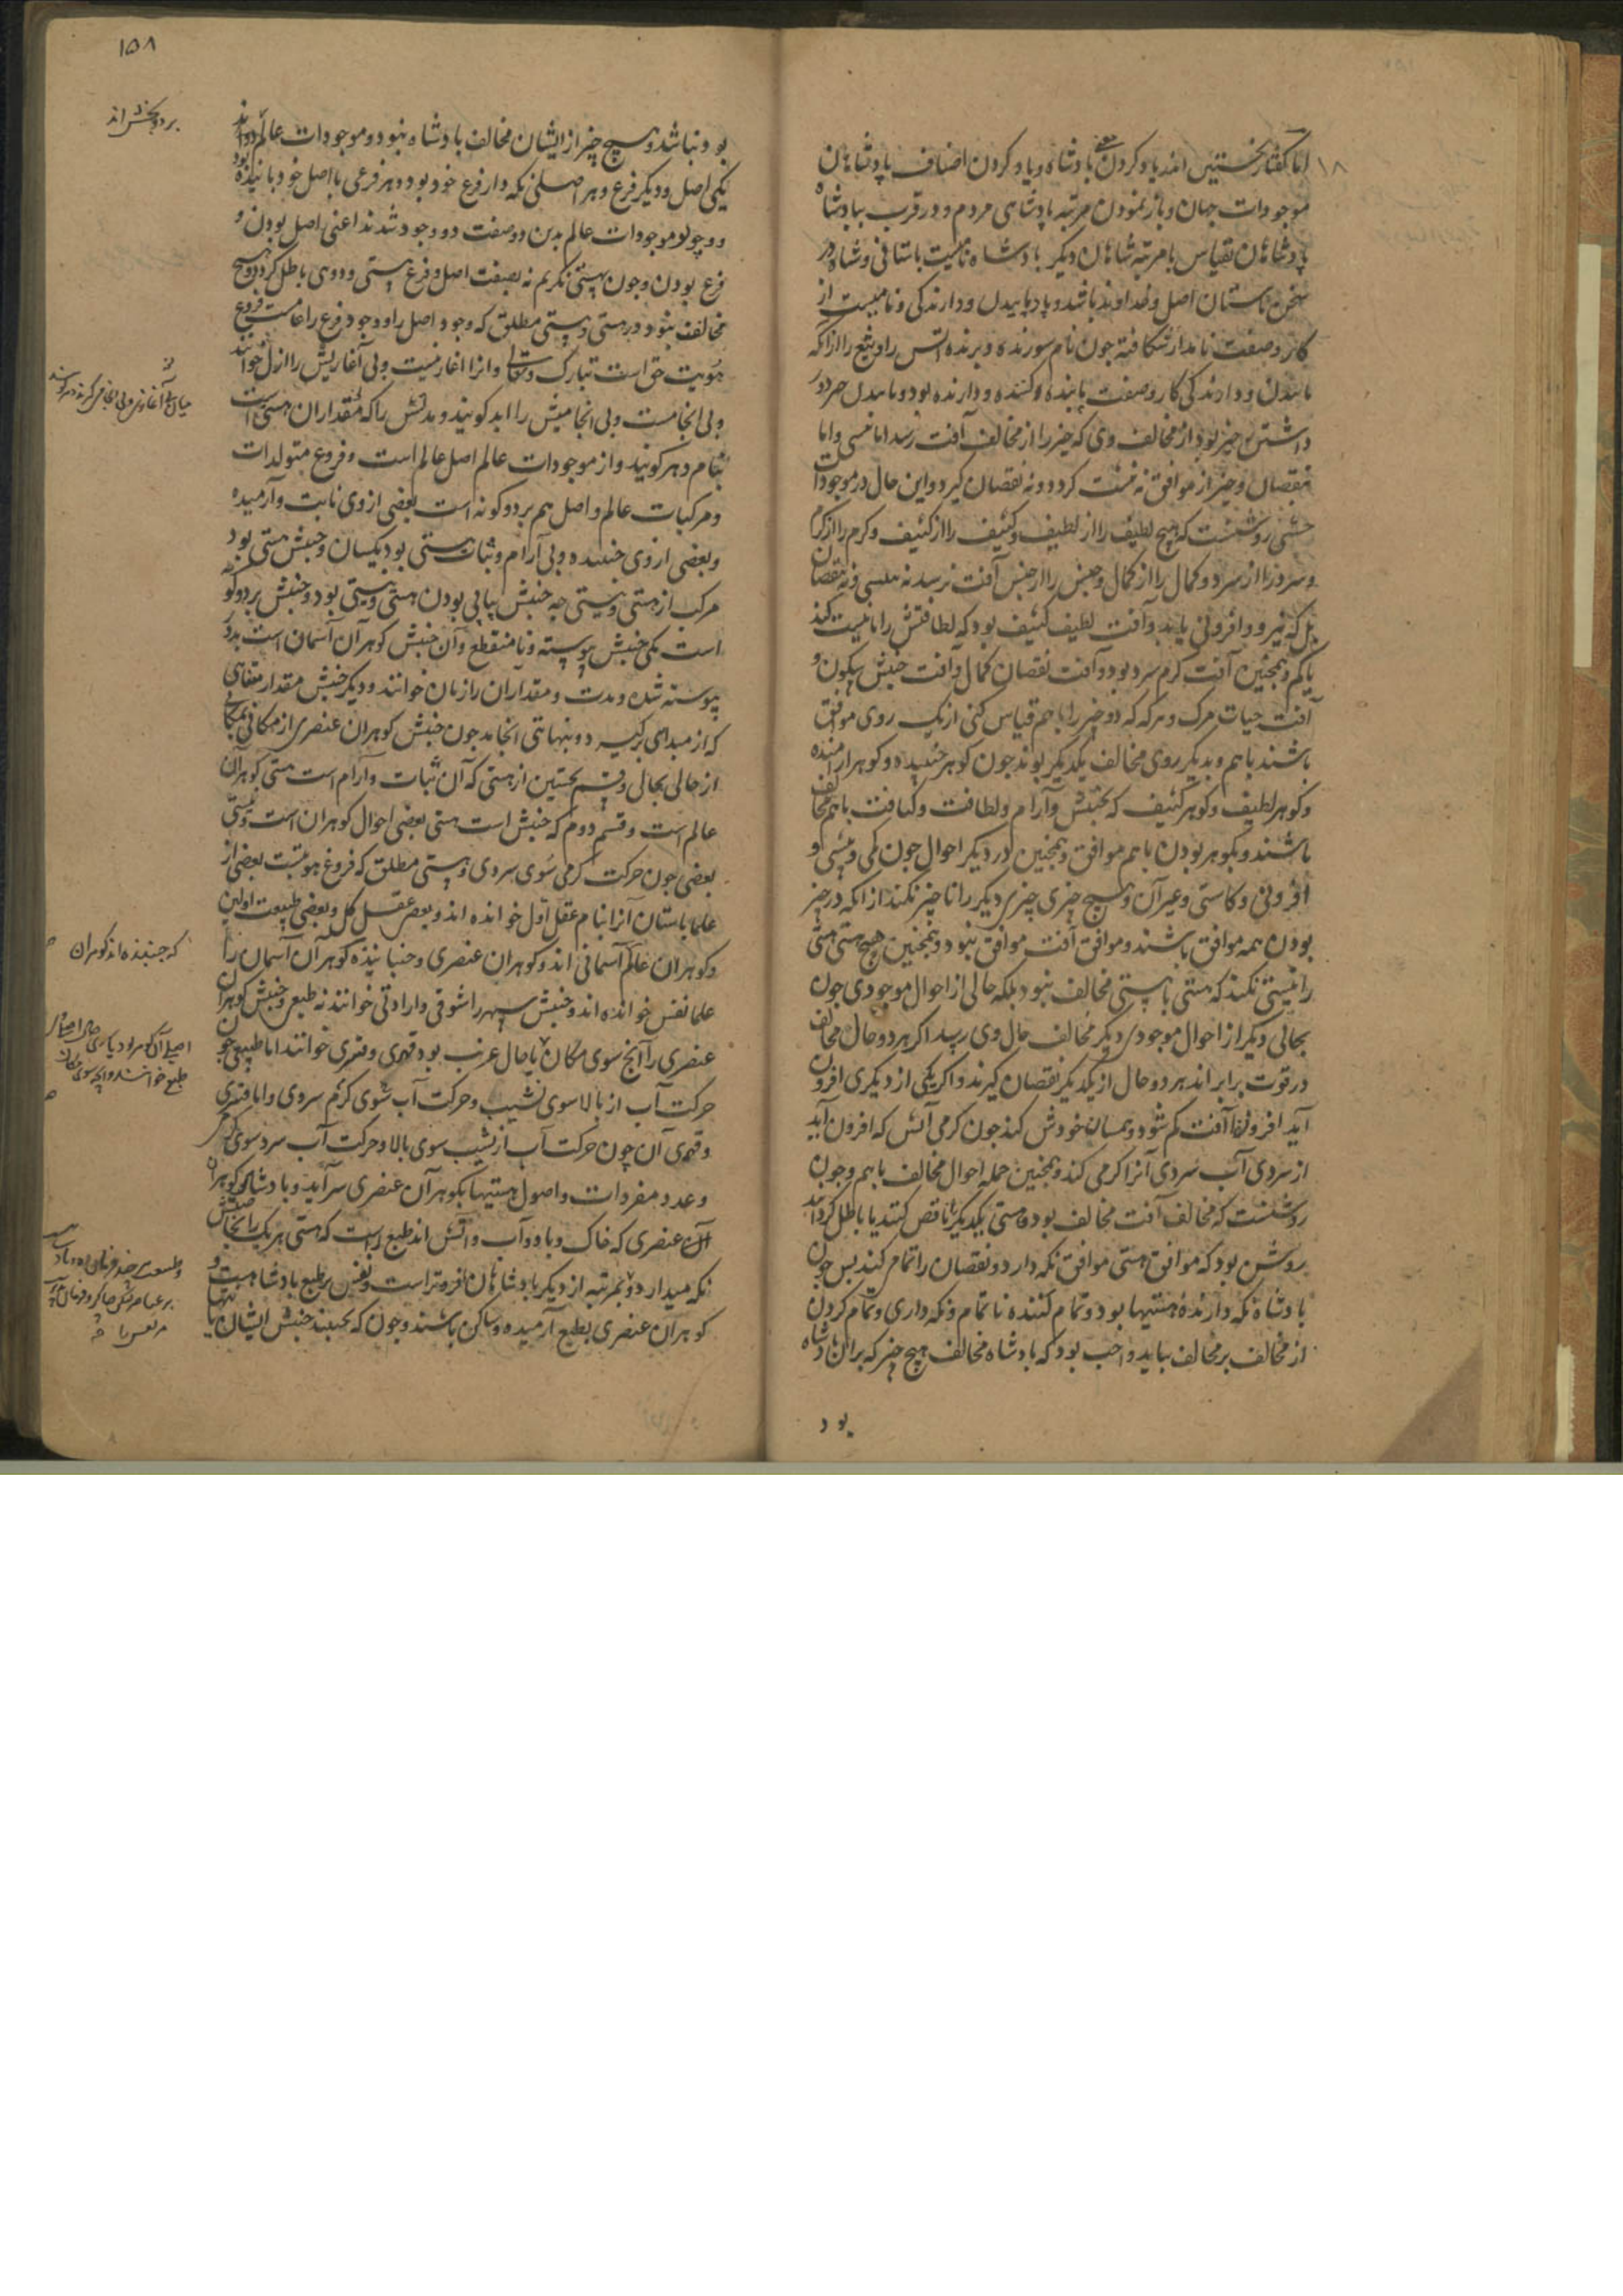 اما گفتار نخستین اندر یاد کردن معنی پادشاه و یاد کردن اصناف پادشاهان
موجودات جهان و باز نمودن مرتبه پادشاهی مردم و در قرب بپادشاه
پادشاهان بقیاس با مرتبه شاهان دیگر پادشاه نامیست باستانی و شاه در
سخن باستان اصل و خداوند باشد و پاد پاییدن و دارندگی و نامیست از
کار و صفت نامدار شکافته چون نام سوزنده و برنده آتش را و تیغ را از آنکه
پاییدن و دارندگی کار و صفت پاینده و کننده و دارنده بود و پاییدن
داشتن چیز بود از مخالف وی که چیز را از مخالف آفت رسد اما نیستی و اما
نقصان و چیز از موافق نه نیست گردد و نه نقصان گیرد و این حال در موجودات
حسی روشنست که هیچ لطیف را از لطیف و کثیف را از کثیف و گرم را از گرم
و سرد را از سرد و کمال را از کمال و جنبش را از جنبش آفت نرسد نه نیستی و نه نقصان
بل که نیرو و افزونی یابد و آفت لطیف کثیف بود که لطافتش را یا نیست کند
یا کم و همچنین آفت گرم سرد بود و آفت نقصان کمال و آفت جنبش سکون و
آفت حیات مرگ و هر گه که دو چیز را با هم قیاس کنی از یک روی موافق
باشند با هم و بدیگر روی مخالف یکدیگر بوند چون گوهر جنبیده و گوهر آرامنده
و گوهر لطیف و گوهر کثیف که بجنبش و آرام و لطافت و کثافت با هم مخالف
باشند و بگوهر بودن با هم موافق و همچنین در دیگر احوال چون کمی و بیشی و
افزونی و کاستی و غیر آن و هیچ چیزی چیزی دیگر را ناچیز نکند از آنکه در چیز
بودن همه موافق باشند و موافق آفت موافق نبود و همچنین هیچ هستی هستی
را نیستی نکند که هستی با هستی مخالف نبود بلکه حالی از احوال موجودی چون
بحالی دیگر از احوال موجودی دیگر مخالف حال وی رسد اگر هر دو حال مخالف
در قوت برابر اند هر دو حال از یکدیگر نقصان گیرند و اگر یکی از دیگری افزون
آید افزون آفت کم شود و بسان خودش کند چون گرمی آتش که افزون آید
از سردی آب سردی آنرا گرمی کند و همچنین جمله احوال مخالف با هم و چون
روشنست که مخالف آفت مخالف بود و هستی یکدیگر ناقص کنند یا باطل گردانند
روشن بود که موافق هستی موافق نگه دارد و نقصان را تمام کند پس چون
پادشاه نگه دارنده هستیها بود و تمام کننده ناتمام و نگه داری و تمام کردن
از مخالف بر مخالف نیاید واجب بود که پادشاه مخالف هیچ چیز که بر آن پادشاه
بود
۱۸
۱۵۸
بود نباشد و هیچ چیز از ایشان مخالف پادشاه نبود و موجودات عالم دو اند
یکی اصل و دیگر فرع و هر اصلی نگه دار فرع خود بود و هر فرعی با اصل خود
و چو موجودات عالم بدین دو صفت دو وجود شدند اعنی اصل بودن و
فرع بودن و چون بهستی نگریم نه بصفت اصل و فرع هستی و دویی باطل گردد و هیچ
مخالف نبود در هستی و هستی مطلق که وجود اصل را و وجود فرع را عامست فروغ
هویت حق است تبارک و تعالی و آنرا آغاز نیست و بی آغازیش را ازل خوانند
و بی انجامست و بی انجامیش را ابد گویند و مدتش را که مقدار آن هستی است
بنام دهر گویند و از موجودات عالم اصل عالم است و فروع متولدات
و مرکبات عالم و اصل هم بر دو گونه است بعضی از وی ثابت و آرمیده
و بعضی از وی جنبنده و بی آرام و ثبات هستی بود یکسان و جنبش هستی بود
مرکب از هستی و نیستی چه جنبش پیاپی بودن هستی و نیستی بود و جنبش بر دو گونه
است یکی جنبش پیوسته و نامنقطع و آن جنبش گوهر آن آسمان است بدو
پیوسته شده و مدت و مقدار آن را زمان خوانند و دیگر جنبش مقدار متناهی
که از مبدای برگیرد و بنهایتی انجامد چون جنبش گوهران عنصری از مکانی بمکانی
از حالی بحالی و قسم نخستین از هستی که آن ثبات و آرام است هستی گوهران
عالم است و قسم دوم که جنبش است هستی بعضی احوال گوهران است و نیستی
بعضی چون حرکت گرمی سوی سردی و هستی مطلق که فروغ هویتست بعضی از
علما باستان آنرا بنام عقل اول خوانده اند و بعضی عقل کل و بعضی طبیعت اولین
و گوهران عالم آسمانی اند و گوهران عنصری و جنباننده گوهر آن آسمان را
علما نفس خوانده اند و جنبش سپهر را شوقی و ارادتی خوانند نه طبعی و جنبش گوهران
عنصری را آنچ سوی مکان یا حال غریب بود قهری و قسری خوانند اما طبیعی چون
حرکت آب از بالا سوی نشیب و حرکت آب سوی گرم سردی و اما قسری
و قهری آن چون حرکت آب از نشیب سوی بالا و حرکت آب سرد سوی گرمی
و عدد مفردات و اصول هستیها بگوهر آن عنصری سر آید و پادشاه گوهران
آن عنصری که خاک و باد و آب و آتش اند طبع راست که هستی هر یک را بخاصیتش
نگه میدارد و بمرتبه از دیگر پادشاهان فروتر است و نفس بر طبع پادشاهست و
گوهران عنصری بطبع آرمیده و ساکن باشند و چون که بجنبند جنبش ایشان
بر دو بخش اند
که جنبنده اند گوهران